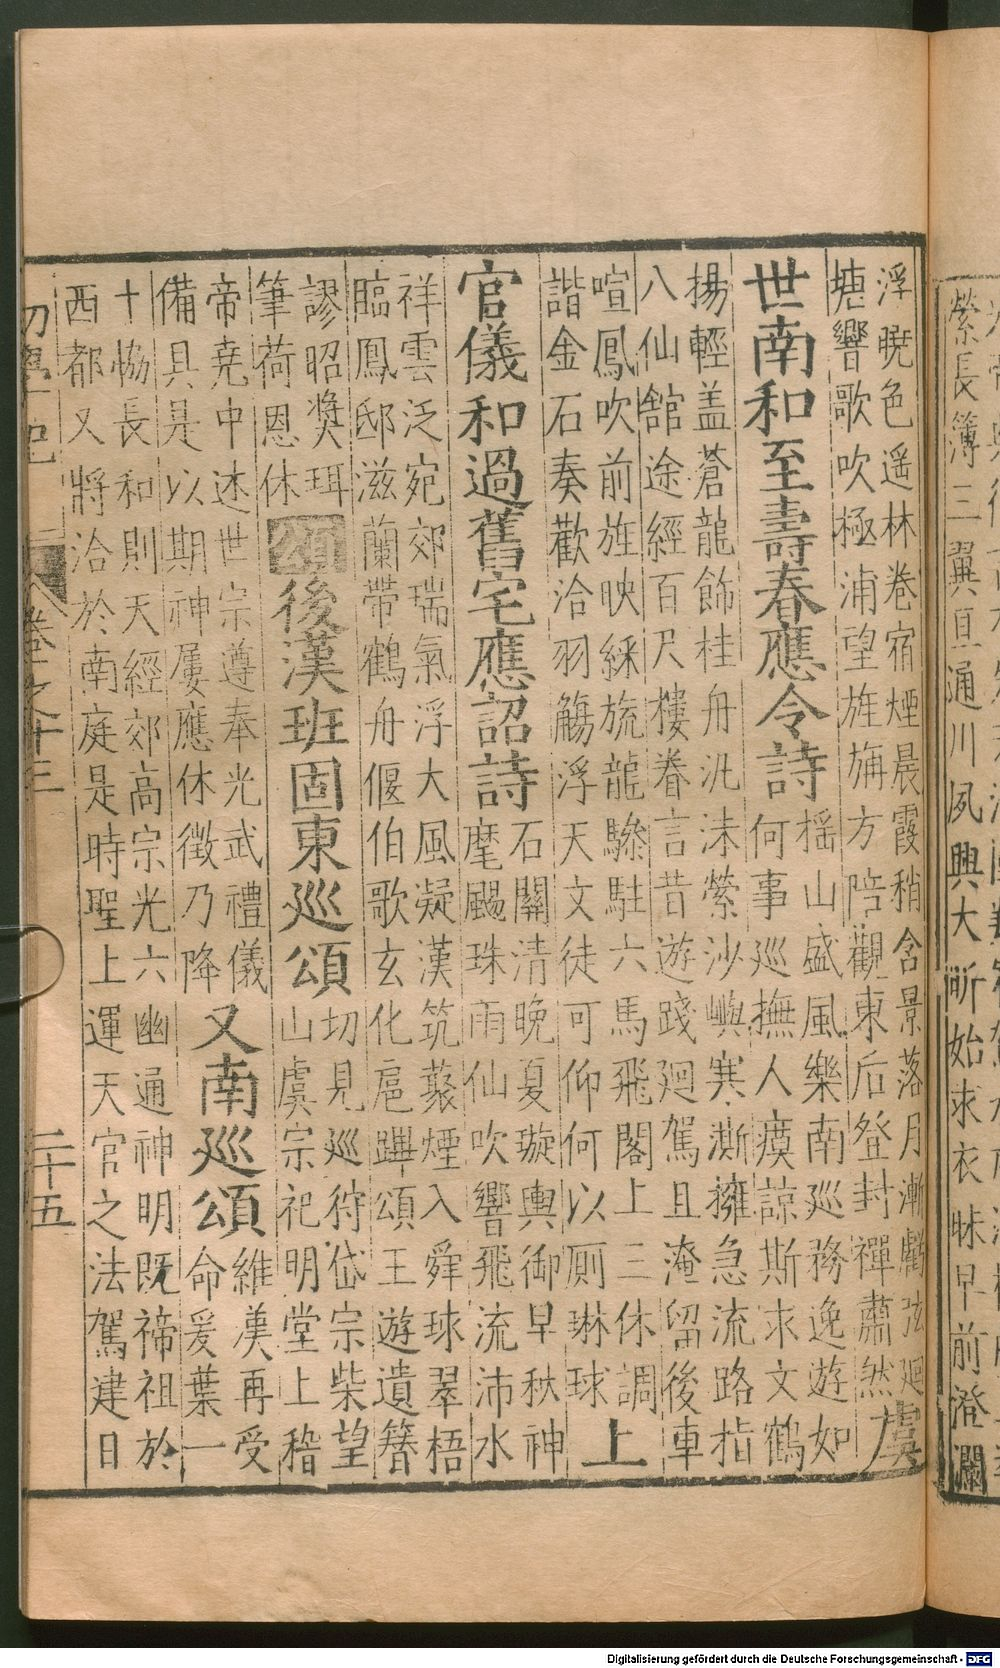 浮曉色遥林卷宿煙晨霞稍含景落月漸虧弦廻
塘響歌吹極浦望旌旃方陪觀東后登封禪肅然虞
世南和至壽春應令詩
揺山盛風樂南巡務逸遊如
何事巡撫人瘼諒斯求文鶴
揚輕蓋蒼龍飾桂舟泚沬縈沙嶼寒澌擁急流路指
八仙舘途經百尺樓眷言昔遊踐廻駕且淹留後車
喧鳳吹前旌映綵旒龍驂駐六馬飛閣上三休調
諧金石奏歡洽羽觴浮天文徒可仰何以厠琳球上
官儀和過舊宅應詔詩
石關清晚夏璇輿御早秋神
麾颺珠雨仙吹響飛流沛水
祥雲泛宛郊瑞氣浮大風凝漢筑藂煙入舜球翠梧
臨鳳邸滋蘭帶鶴舟偃伯歌玄化扈蹕頌王遊遺簪
謬昭奨珥
筆荷恩休
頌後漢班固東巡頌
切見巡狩岱宗柴望
山虞宗祀明堂上稽
帝堯中述世宗遵奉光武禮儀
備具是以期神屢應休徴乃降
又南巡頌
維漢再受
命爰葉一
十恊長和則天經郊高宗光六幽通神明既禘祖於
西都又將洽於南庭是時聖上運天官之法駕建日
卷之十三
二十五
縈長簿三翼亘通川夙興大昕始求衣昧早前澄瀾
Digitalisierung gefördert durch die Deutsche Forschungsgemeinschaft - DFG